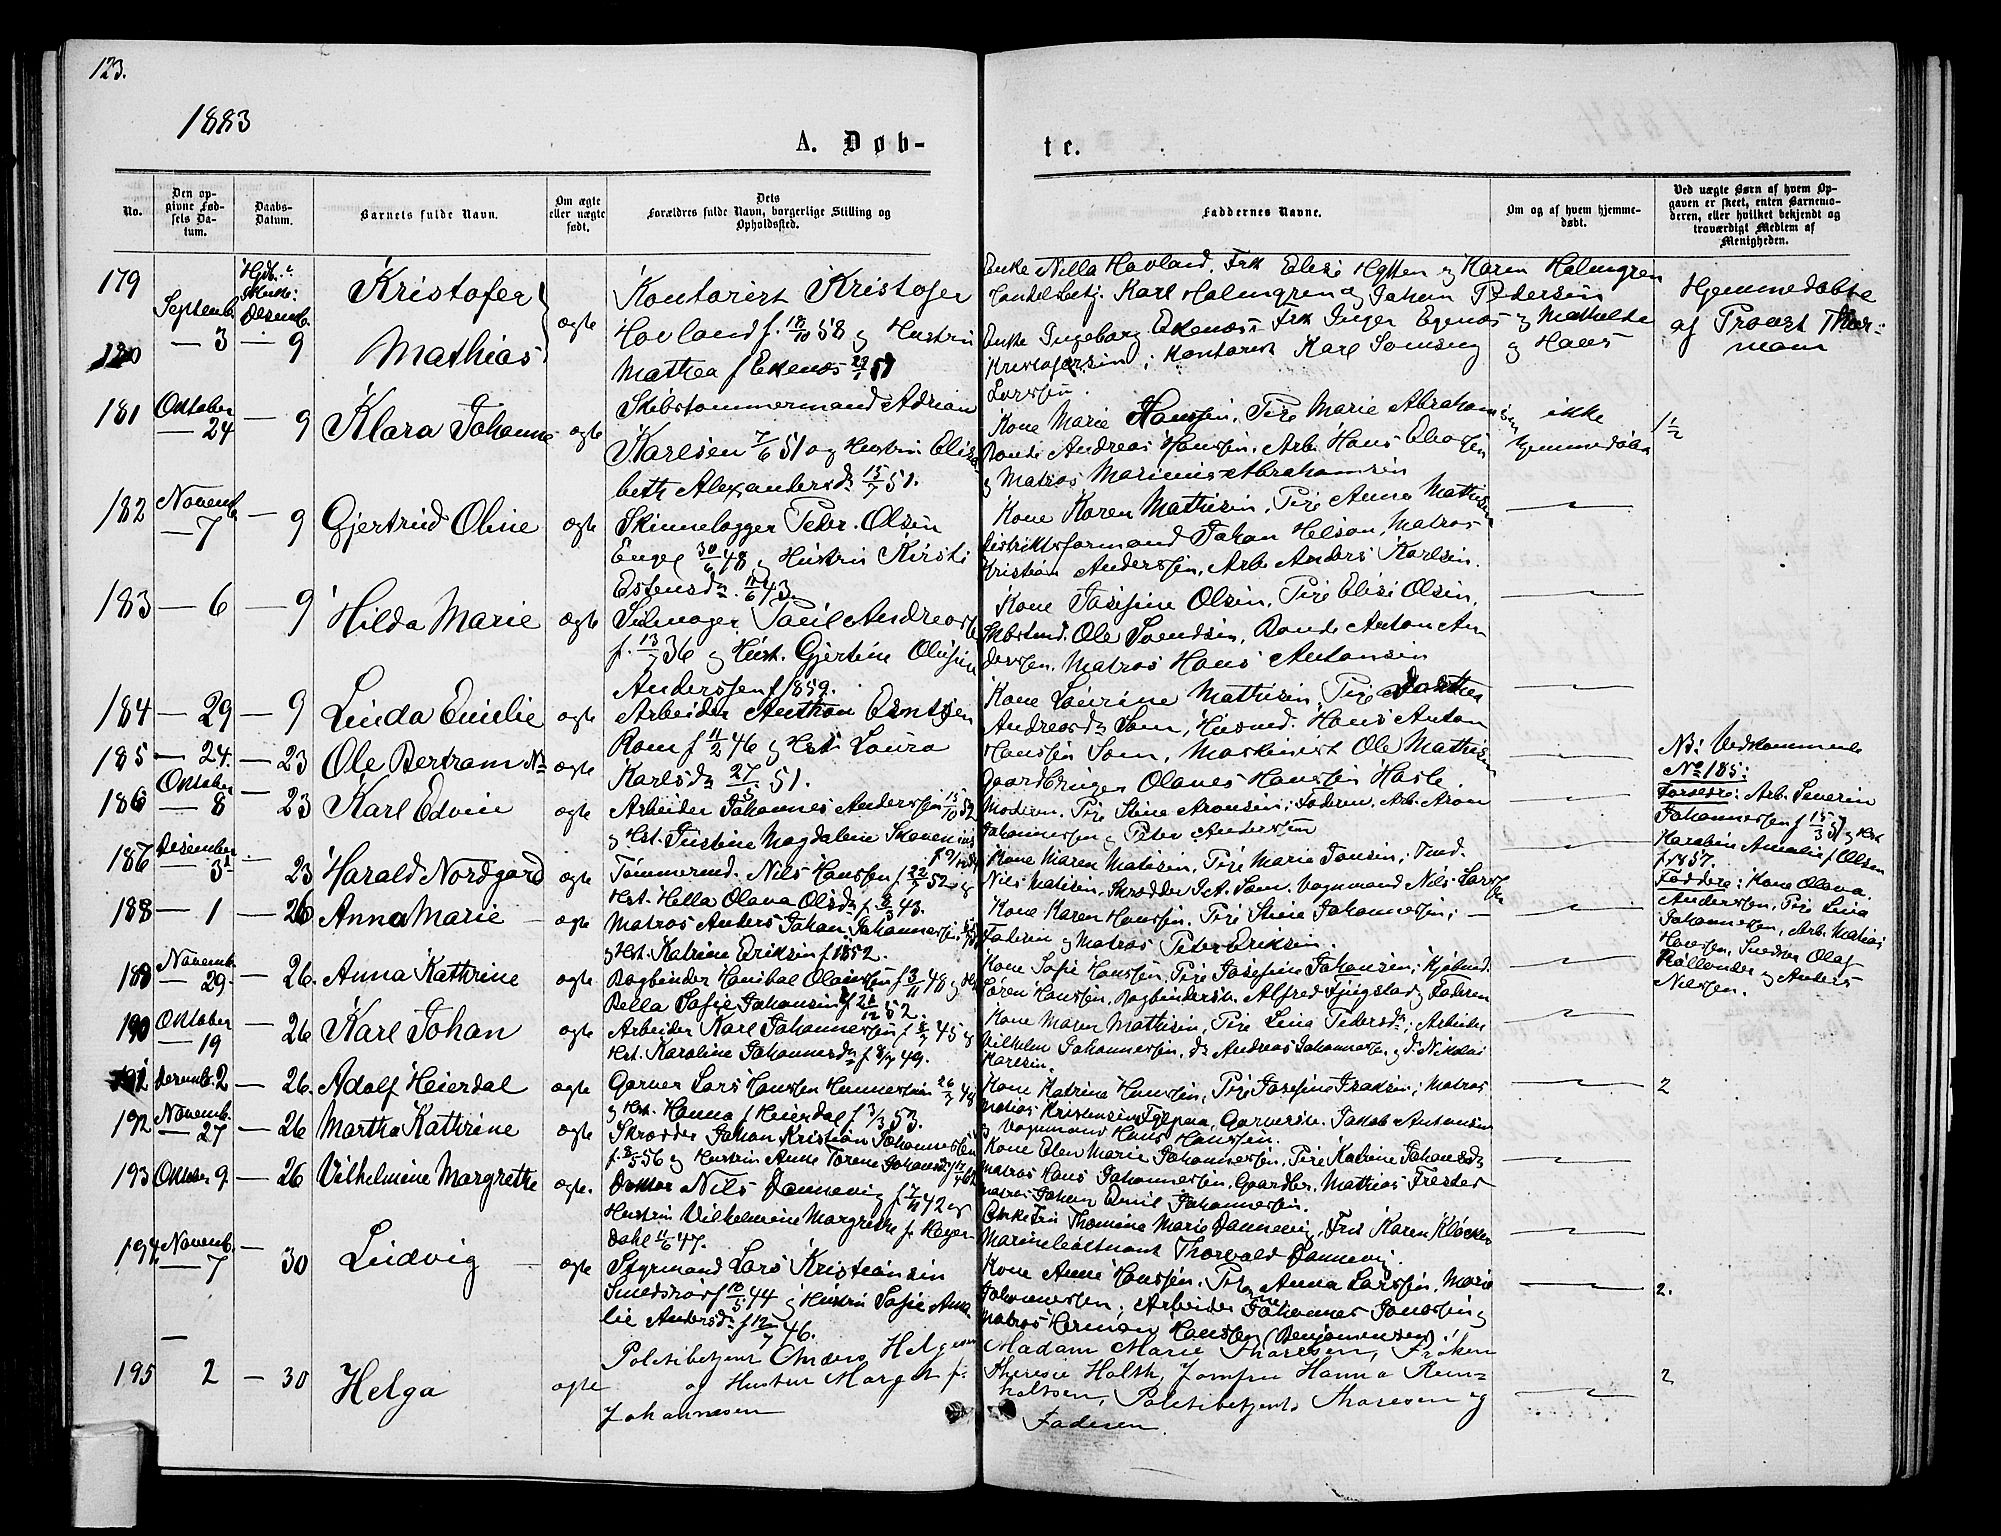 123.
1883
A. Døb-
te.
No.
Den op-
givne Fød-
sels Da-
tum.
Daabs-
Datum.
Barnets fulde Navn.
Om ægte
eller uægte
født.
Dets
Forældres fulde Navn, borgerlige Stilling og
Opholdssted.
Faddernes Navne.
Om og af hvem hjemme-
døbt.
Ved uægte Børn af hvem Op-
gaven er skeet, enten Barnemo-
deren, eller hvilket bekjendt og
troværdigt Medlem af
Menigheden.
179
Septemb.
— 3
Hjdb.
Desemb.
— 9
Kristofer
180
Mathias
ægte
Kontorist Kristofer
Hovland f. 18/10 58 og Hustru
Mathea f Ekenæs
Enke Nilla Hovland, Frk Elise og Karen Holmgren
Handelsbetj. Karl Holmgren og Johan Pedersen
Enke Ingeborg Ekenæs Frk Inger Egenæs og Mathilde
Kristofersen; Kontorist Karl og Hans
Larssen.
Hjemmedøbte
af Provst Thor-
181
Oktober
— 24
— 9
Klara Johanne
ægte
Skibstømmermand Adrian
Karlsen 7/6 51 og Hustru Elisa
beth Alexandersd. 15/7 51.
Kone Marie Hanssen, Pige Marie Abraham
Andreas Hanssen, Arb. Hans
og Matros Marinius Abrahamsen
ikke
hjemmedøbt
1 1/2
182
Novemb.
— 7
— 9
Gjertrud Oline
ægte
Peder Olsen
Engel 30/6 48 og Hustru Kirsti
Estensd. 11/6 43.
Kone Karen Mathisen, Pige Anna Mathisen
Distriktsformand Johan Nelson, Matros
Kristian Anderssen, Arb. Anders Karlsen.
183
— 6
— 9
Hilda Marie
ægte
Seilmager Paul Andreas
f. 13/7 36 og Hust. Gjertine Oline
Anderssen f 1859.
Kone Josefine Olsen, Pige Elise Olsen,
Skibstmd. Ole Svendsen, Anton An
derssen, Matros Hans Antonsen
184
— 29
— 9
Linda Emilie
ægte
Arbeider Anthon Berntsen
Rom f 11/2 46 og Hst. Laura
Karlsd. 27/5 51.
Kone Laurine Mathisen, Pige Dorthea
Andreasd. Som, Husmd. Hans Anton
Hanssen Som, Maskinist Ole Mathisen
Gaardbruger Olaves Hanssen Hasle
185
— 24.
— 23
Ole Bertram
ægte
NB: Vedkommende
No 185:
Forældre: Arb. Severin
Johannessen f 15/3 51 og Hst
Karoline Amalie f Olsen
f. 1857.
Faddere: Kone Olava
Anderssen, Pige Lina
Johannessen, Arb. Matias
Olaf
og Anders
Nilssen.
186
Oktober
— 8
— 23
Karl Edvin
ægte
Arbeider Johannes Anderssen 15/10 52
og Hst. Justine Magdalene
Moderen, Pige Stine Aronsen; Faderen, Arb. Aron
Johannessen og Peter Andersson
187
Desember
— 3
23
Harald Nordgard
ægte
Tømmermd. Nils Hanssen f 22/7 52 og
Hst. Hella Olava Olsd. f 8/3 43.
Kone Maren Matisen, Pige Marie Jansen;
Nils Matisen, Skrædder Som, Vognmand Nils Larssen
188
— 1
— 26
Anna Marie
ægte
Matros Anders Johan Johannessen
og Hst. Katrine Eriksen f 1852.
Kone Karen Hanssen, Pige Stine Johannessen; —
Faderen og Matros Peter Eriksen.
189
Novemb.
— 29
— 26.
Anna Kathrine
ægte
Bogbinder Hanibal Olaussen f 3/11 48 og Hst
Bella Sofie Johansen f 28/12 52.
Kone Sofie Hanssen, Pige Josefine Johansen;
Søren Hanssen, Bogbindersv. Alfred og Faderen
190
Oktober
— 19
— 26
Karl Johan
ægte
Arbeider Karl Johannessen f 45 og
Hst. Karoline Johannesd. f 8/7 49.
Kone Maren Mathisen, Pige Lina Pedersd.; Arbeider
Vilhelm Johannessen, do Andreas Johannessen og do Nikolai
Karlsen.
191
Desemb. 2
— 26.
Adolf Heierdal
ægte
Garver Lars Hanssen 26/7 48
og Hst. Hanna f Heierdal f 3/3 53.
Kone Katrina Hanssen, Pige Josefine Isaksen; Matros
Matias Kristensen, Garversv. Jakob Antonsen
og Vognmand Hans Hanssen.
2
192
Novemb.
— 27
— 26
Martha Kathrine
ægte
Skrædder Johan Kristian Johannessen
f. 56 og Hustru Anne Torene Johansd.
Kone Elen Marie Johannessen, Pige Katrine Johansd.
Matros Hans Johannessen, Gaardbr. Mathias
Matros Johan Emil Johannessen.
193
Oktober 9.
— 26
Vilhelmine Margrethe
ægte.
Doktor Nils Dannevig f 7/11 42 og
Hustru Vilhelmine Margrethe f. Heyer-
dahl 11/6 47.
Enkefru Thomine Marie Dannevig, Frk Karen Kløcker
Marinelieutnant Thorvald Dannevig
194
Novemb.
— 7
— 30
Ludvig
ægte
Styrmand Lars Kristiansen
Smedsrør f 10/5 44 og Hustru Sofie Ama
lie Andersd. f 12/7 46.
Kone Anne Hanssen, Pige Anna Larssen, Marie
Johannessen; Arbeider Johannes Jonassen og
Matros Herman Hanssen (Benjaminsen)
2.
195
—
2
— 30
Helga
ægte
Politibetjent Anders Helgesen
og Hustru Margit f.
Johannesen
Madam Marie Thoresen, Frøken
Theresie Holth, Jomfru Hanna Rein-
holtsen, Politibetjent Thoresen og
Faderen.
2